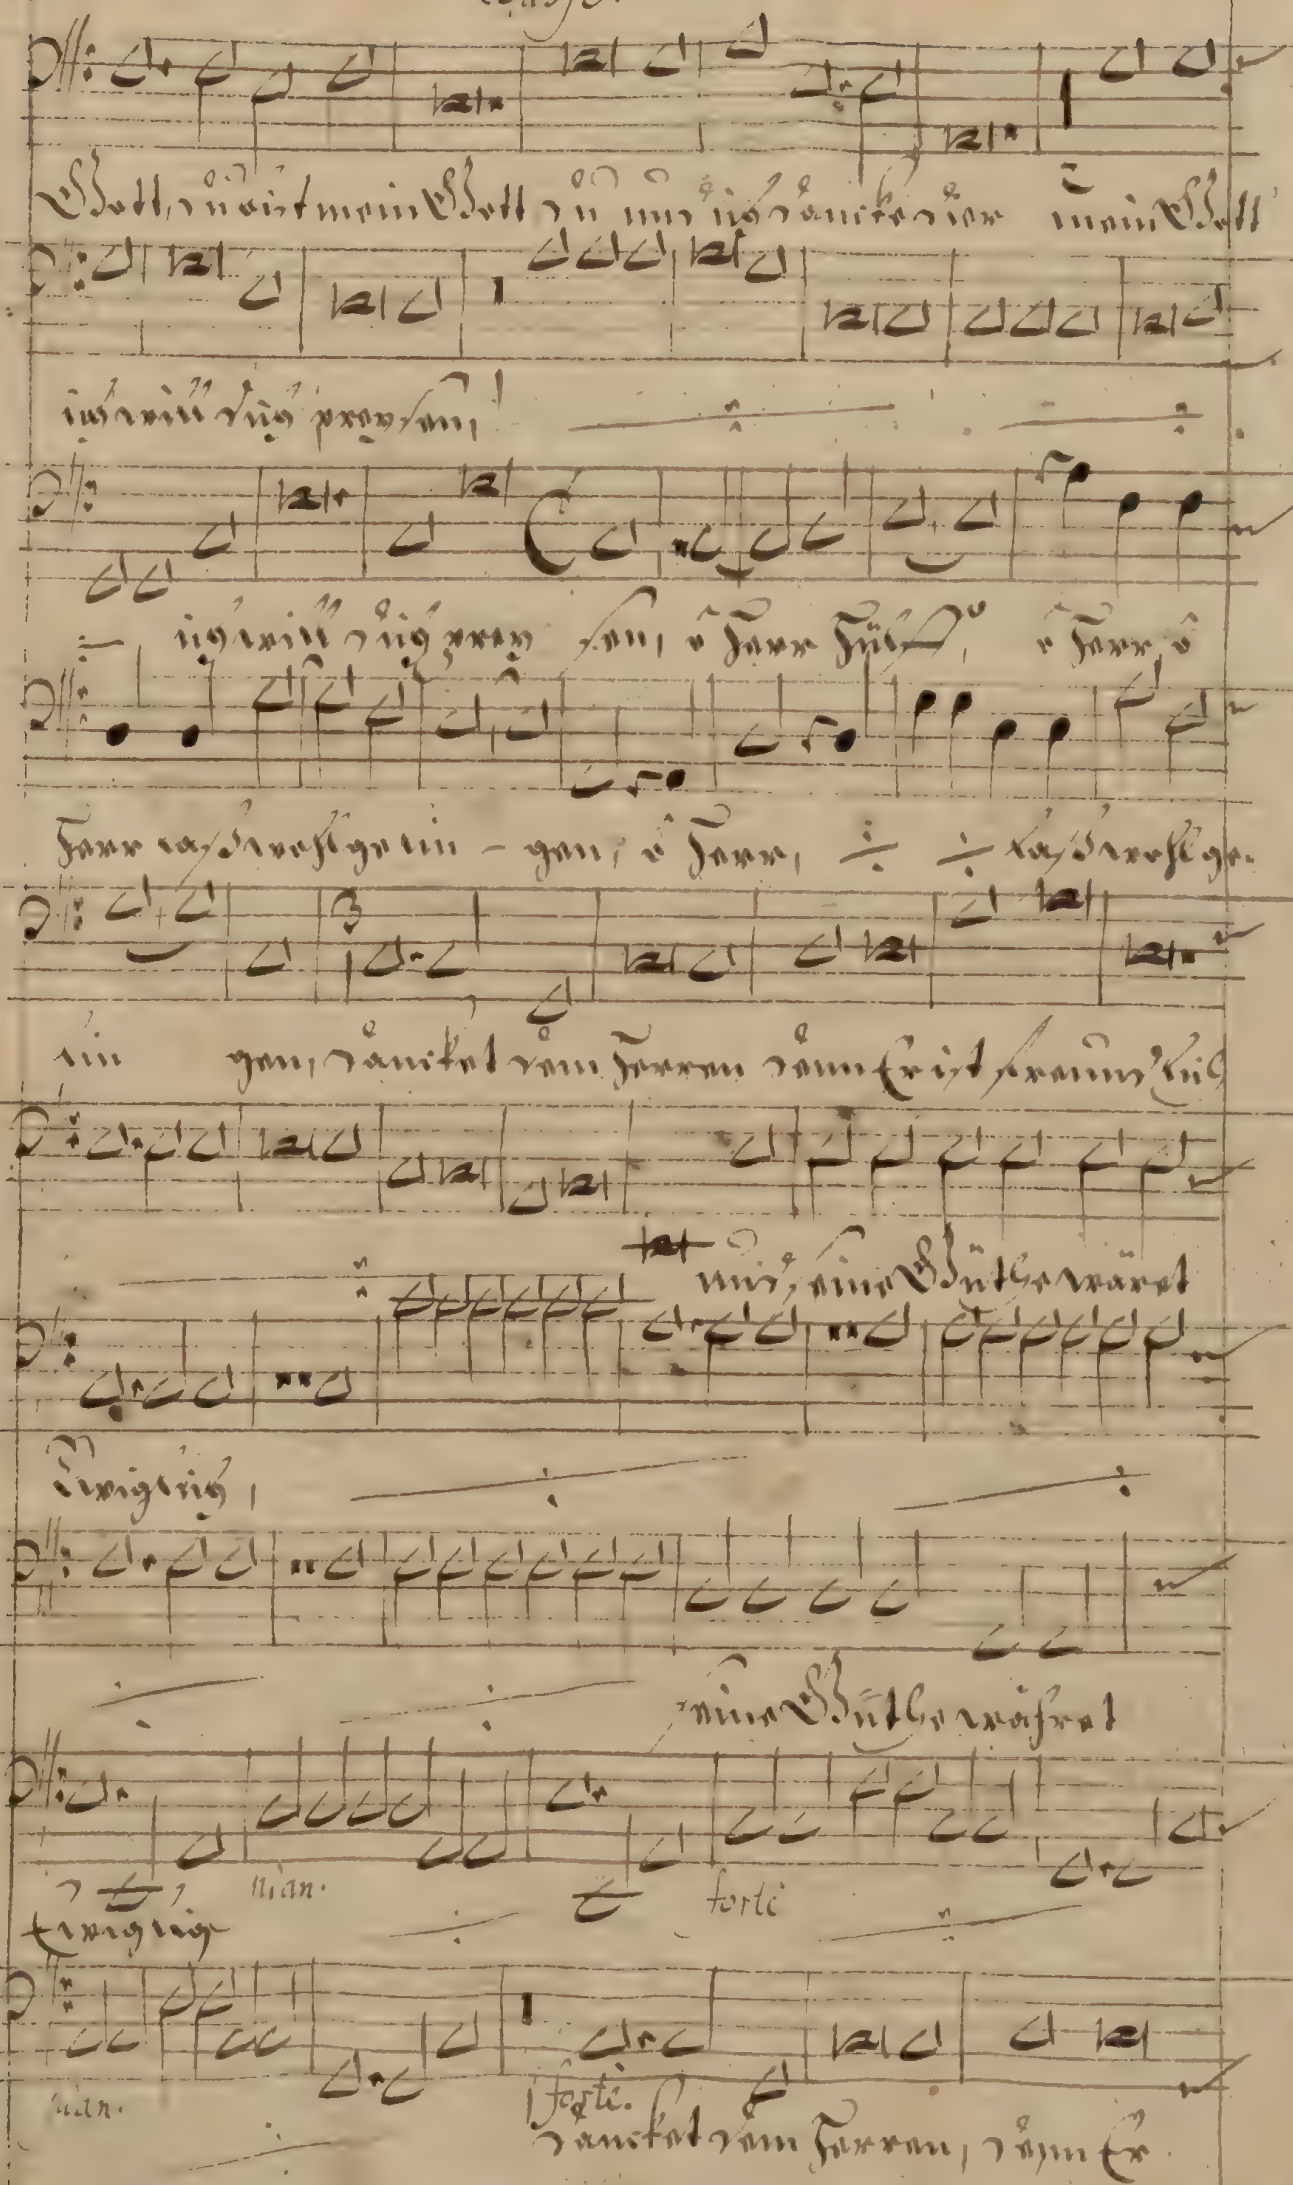 Basso.
Gott, du bist mein Gott du und ich dancke dier mein Gott
ich will dich preysen,
ich will dich prey sen, o Herr Hülff, o Herr, o
Herr laß wohl gelin - gen, o Herr, laß wohl ge-
lin gen, dancket dem Herren denn Er ist freundlich
und seine Güthe wäret
Ewiglich,
seine Güthe währet
Ewiglich
pian. forte
pian. forte.
dancket dem Herren, denn Er